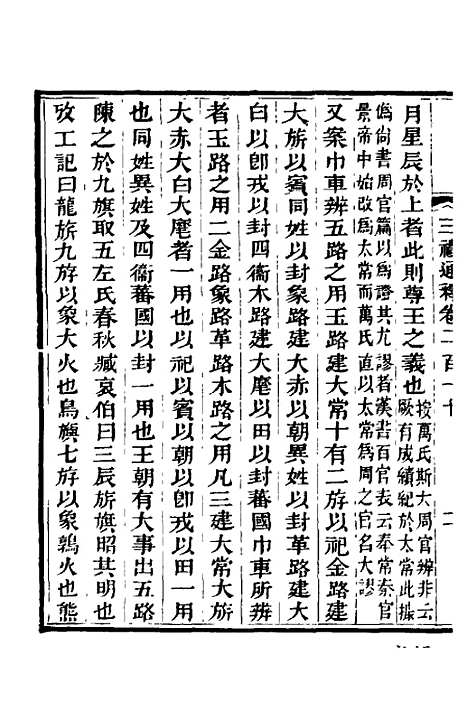 三禮通釋卷二百一十　二
月星辰於上者此則尊王之義也
按萬氏斯大周官辨非云
厥有成績紀於太常此據
僞尙書周官篇以爲證其尤謬者漢書百官表云奉常秦官
景帝中始改爲太常而萬氏直以太常爲周之官名大謬
又案巾車辨五路之用玉路建大常十有二斿以祀金路建
大旂以賓同姓以封象路建大赤以朝異姓以封革路建大
白以卽戎以封四衞木路建大麾以田以封蕃國巾車所辨
者玉路之用二金路象路革路木路之用凡三建大常大旂
大赤大白大麾者一用也以祀以賓以朝以卽戎以田一用
也同姓異姓及四衞蕃國以封一用也王朝有大事出五路
陳之於九旗取五左氏春秋臧哀伯曰三辰旂旗昭其明也
攷工記曰龍旂九斿以象大火也鳥旟七斿以象鶉火也熊